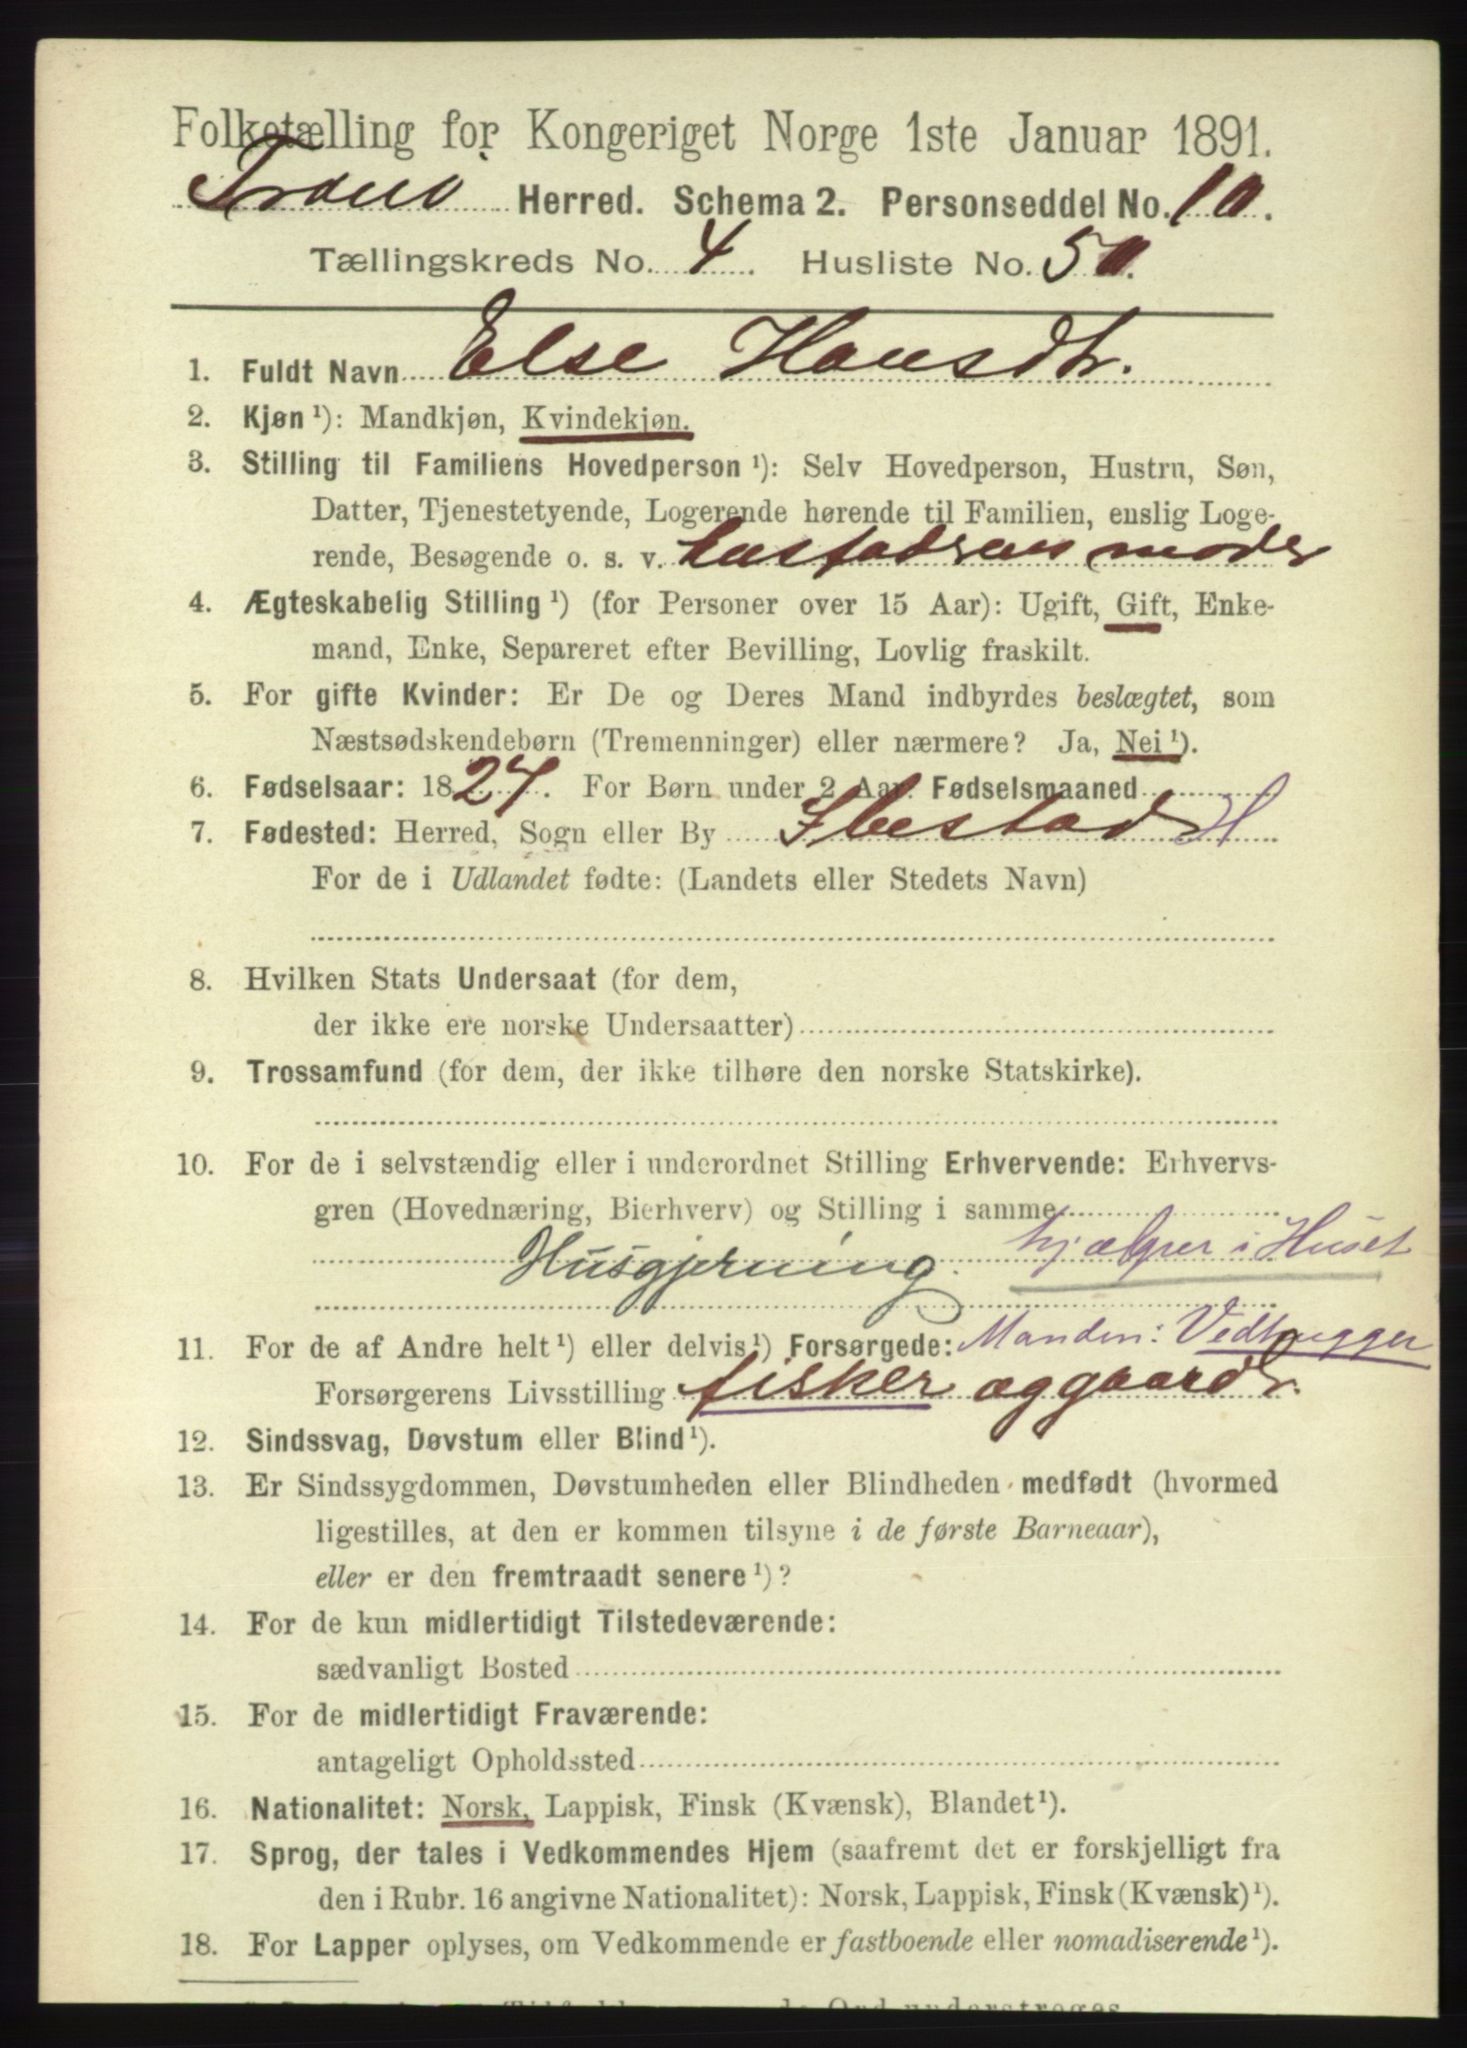 Folketælling for Kongeriget Norge 1ste Januar 1891.
Tranø Herred. Schema 2. Personseddel No. 10.
Tællingskreds No. 4. Husliste No. 50.
1. Fuldt Navn Else Hansdtr.
2. Kjøn ¹): Mandkjøn, Kvindekjøn.
3. Stilling til Familiens Hovedperson ¹): Selv Hovedperson, Hustru, Søn,
Datter, Tjenestetyende, Logerende hørende til Familien, enslig Loge-
rende, Besøgende o. s. v. moder
4. Ægteskabelig Stilling ¹) (for Personer over 15 Aar): Ugift, Gift, Enke-
mand, Enke, Separeret efter Bevilling, Lovlig fraskilt.
5. For gifte Kvinder: Er De og Deres Mand indbyrdes beslægtet, som
Næstsødskendebørn (Tremenninger) eller nærmere? Ja, Nei ¹).
6. Fødselsaar: 1824. For Børn under 2 Aar. Fødselsmaaned
7. Fødested: Herred, Sogn eller By Ibestad H
For de i Udlandet fødte: (Landets eller Stedets Navn)
8. Hvilken Stats Undersaat (for dem,
der ikke ere norske Undersaatter)
9. Trossamfund (for dem, der ikke tilhøre den norske Statskirke).
10. For de i selvstændig eller i underordnet Stilling Erhvervende: Erhvervs-
gren (Hovednæring, Bierhverv) og Stilling i samme
Husgjerning. hjælper i Huset
11. For de af Andre helt ¹) eller delvis ¹) Forsørgede: Manden: Vedhugger
Forsørgerens Livsstilling fisker og gaardbr.
12. Sindssvag, Døvstum eller Blind ¹).
13. Er Sindssygdommen, Døvstumheden eller Blindheden medfødt (hvormed
ligestilles, at den er kommen tilsyne i de første Barneaar),
eller er den fremtraadt senere ¹)?
14. For de kun midlertidigt Tilstedeværende:
sædvanligt Bosted
15. For de midlertidigt Fraværende:
antageligt Opholdssted
16. Nationalitet: Norsk, Lappisk, Finsk (Kvænsk), Blandet ¹).
17. Sprog, der tales i Vedkommendes Hjem (saafremt det er forskjelligt fra
den i Rubr. 16 angivne Nationalitet): Norsk, Lappisk, Finsk (Kvænsk) ¹).
18. For Lapper oplyses, om Vedkommende er fastboende eller nomadiserende ¹).